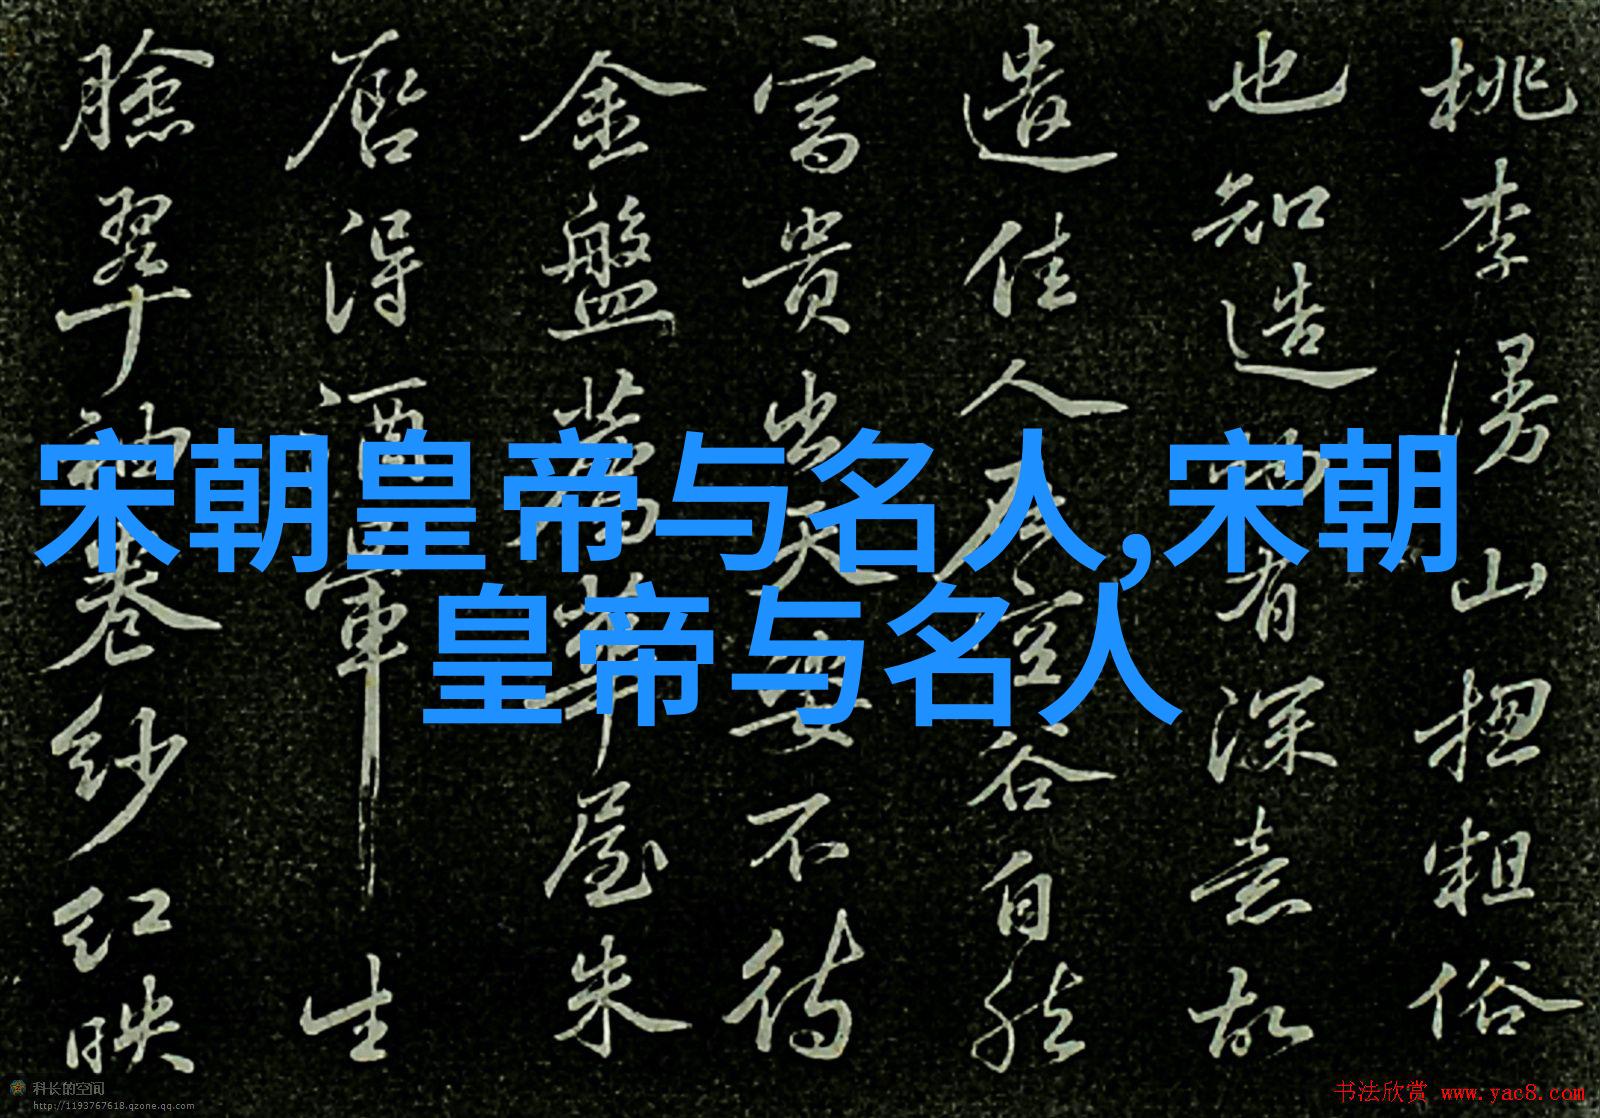 宋朝皇帝与名人,宋朝
皇帝与名人
桃李漫山揔粗俗
也知造物有深意故
遣佳人在空谷自然
富貴出天姿不待
金盤薦華屋朱
唇得酒暈生
臉翠袖卷紗紅映
科长的空间
http://1193767618.qzone.qq.com
书法欣赏 www.yac8.com